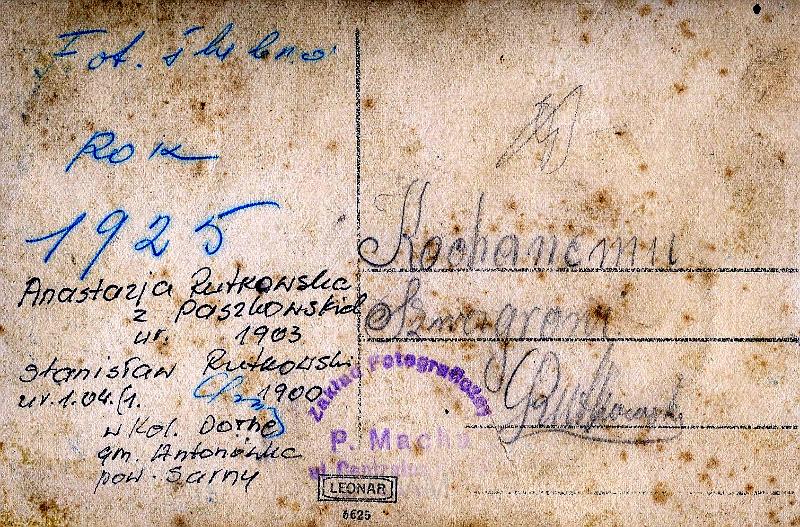 Fot. ślubna
Rok
1925
Anastazja Rutkowska
z Paszkowskich
ur. 1903
Stanisław Rutkowski
ur. 1.04. 1900
w Kol. Dorne
gm. Antonówka
pow. Sarny
Kochanemu
Szwagrowi
Zakład Fotograficzny
P. Macha
ul.
LEONAR
6625